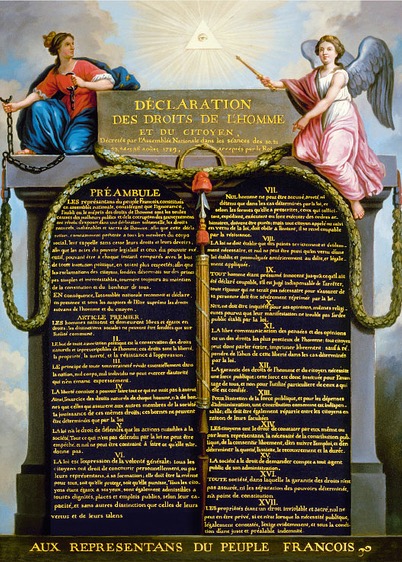 DÉCLARATION
DES DROITS DE L'HOMME
ET DU CITOYEN,
Décretés par l'Assemblée Nationale dans les séances des 20, 21
23, 24 et 26 août 1789, acceptés par le Roi
PRÉAMBULE
LES représentans du peuple François, constitués
en assemblée nationale, considérant que l'ignorance,
l'oubli ou le mépris des droits de l'homme sont les seules
causes des malheurs publics et de la corruption des gouvernemens
ont résolu d'exposer dans une déclaration solemnelle, les droits
naturels, inaliénables et sacrés de l'homme; afin que cette décla-
ration, constamment présente à tous les membres du corps
social, leur rappelle sans cesse leurs droits et leurs devoirs;
afin que les actes du pouvoir législatif et ceux du pouvoir exé-
cutif, pouvant être à chaque instant comparés avec le but
de toute institution politique, en soient plus respectés; afin que
les réclamations des citoyens, fondées désormais sur des princi-
pes simples et incontestables, tournent toujours au maintien
de la constitution et du bonheur de tous.
EN conséquence, l'assemblée nationale reconnoit et déclare,
en présence et sous les auspices de l'Être suprême les droits
suivans de l'homme et du citoyen.
ARTICLE PREMIER
LES hommes naissent et demeurent libres et égaux en
droits. les distinctions sociales ne peuvent être fondées que sur
l'utilité commune.
II.
LE but de toute association politique est la conservation des droits
naturels et imprescriptibles de l'homme; ces droits sont la liberté,
la propriété, la sureté, et la résistance à l'oppression.
III.
LE principe de toute souveraineté réside essentiellement dans
la nation, nul corps, nul individu ne peut exercer d'autorité
qui n'en émane expressement.
IV.
LA liberté consiste à pouvoir faire tout ce qui ne nuit pas à autrui
Ainsi, l'exercice des droits naturels de chaque homme, n'a de bor-
nes que celles qui assurent aux autres membres de la société
la jouissance de ces mêmes droits; ces bornes ne peuvent
être déterminées que par la loi
V.
LA loi n'a le droit de défendre que les actions nuisibles à la
société. Tout ce qui n'est pas défendu par la loi ne peut être
empêché, et nul ne peut être contraint à faire ce qu'elle n'or-
donne pas.
VI.
LA loi est l'expression de la volonté générale; tous les
citoyens ont droit de concourir personnellement, ou par
leurs représentans, à sa formation; elle doit être la même
pour tous, soit qu'elle protege, soit qu'elle punisse. Tous les cito-
yens étant égaux à ses yeux, sont également admissibles à
toutes dignités, places et emplois publics, selon leur ca-
pacité, et sans autres distinction que celles de leurs
vertus et de leurs talens
VII.
NUL homme ne peut être accusé, arreté, ni
détenu que dans les cas déterminés par la loi, et
selon les formes qu'elle a prescrites, ceux qui sollici-
tent, expédient, exécutent ou font exécuter des ordres ar-
bitraires, doivent être punis; mais tout citoyen appelé ou saisi
en vertu de la loi, doit obéir à l'instant, il se rend coupable
par la résistance.
VIII.
LA loi ne doit établir que des peines strictement et évidem-
ment nécessaire, et nul ne peut être puni qu'en vertu d'une
loi établie et promulguée antérieurement au délit, et légale-
ment appliquée.
IX.
TOUT homme étant présumé innocent jusqu'à ce qu'il ait
été déclaré coupable, s'il est jugé indispensable de l'arrêter,
toute rigueur qui ne serait pas nécessaire pour s'assurer de
sa personne doit être sévèrement réprimée par la loi.
X.
NUL ne doit être inquiété pour ses opinions, mêmes religi-
euses pourvu que leur manifestation ne trouble pas l'ordre
public établi par la loi.
XI.
LA libre communication des pensées et des opinions
est un des droits les plus précieux de l'homme; tout citoyen
peut donc parler, écrire, imprimer librement: sauf à ré-
pondre de l'abus de cette liberté dans les cas déterminés
par la loi.
XII.
LA garantie des droits de l'homme et du citoyen, nécessite
une force publique; cette force est donc instituée pour l'avan-
tage de tous, et non pour l'utilité particuliere de ceux à qui
elle est confiée.
XIII.
POUR l'entretien de la force publique, et pour les dépenses
d'administration, une contribution commune est indispen-
sable; elle doit être également répartie entre les citoyens
en raison de leurs facultées
XIV.
LES citoyens ont le droit de constater par eux même ou
par leurs représentans, la nécessité de la contribution pub-
lique, de la consentir librement, d'en suivre l'emploi, et d'en
déterminer la quotité, l'assiette, le recouvrement et la durée.
XV.
LA société a le droit de demander compte à tout agent
public de son administration.
XVI.
TOUTE société, dans laquelle la garantie des droits n'est
pas assurée, ni la séparation des pouvoirs déterminée,
n'a point de constitution.
XVII.
LES propriétés étant un droit inviolable et sacré, nul ne
peut en être privé, si ce n'est lorsque la nécessité publique,
légalement constatée, l'exige évidemment, et sous la condi-
tion d'une juste et préalable indemnité.
AUX REPRESENTANS DU PEUPLE FRANCOIS